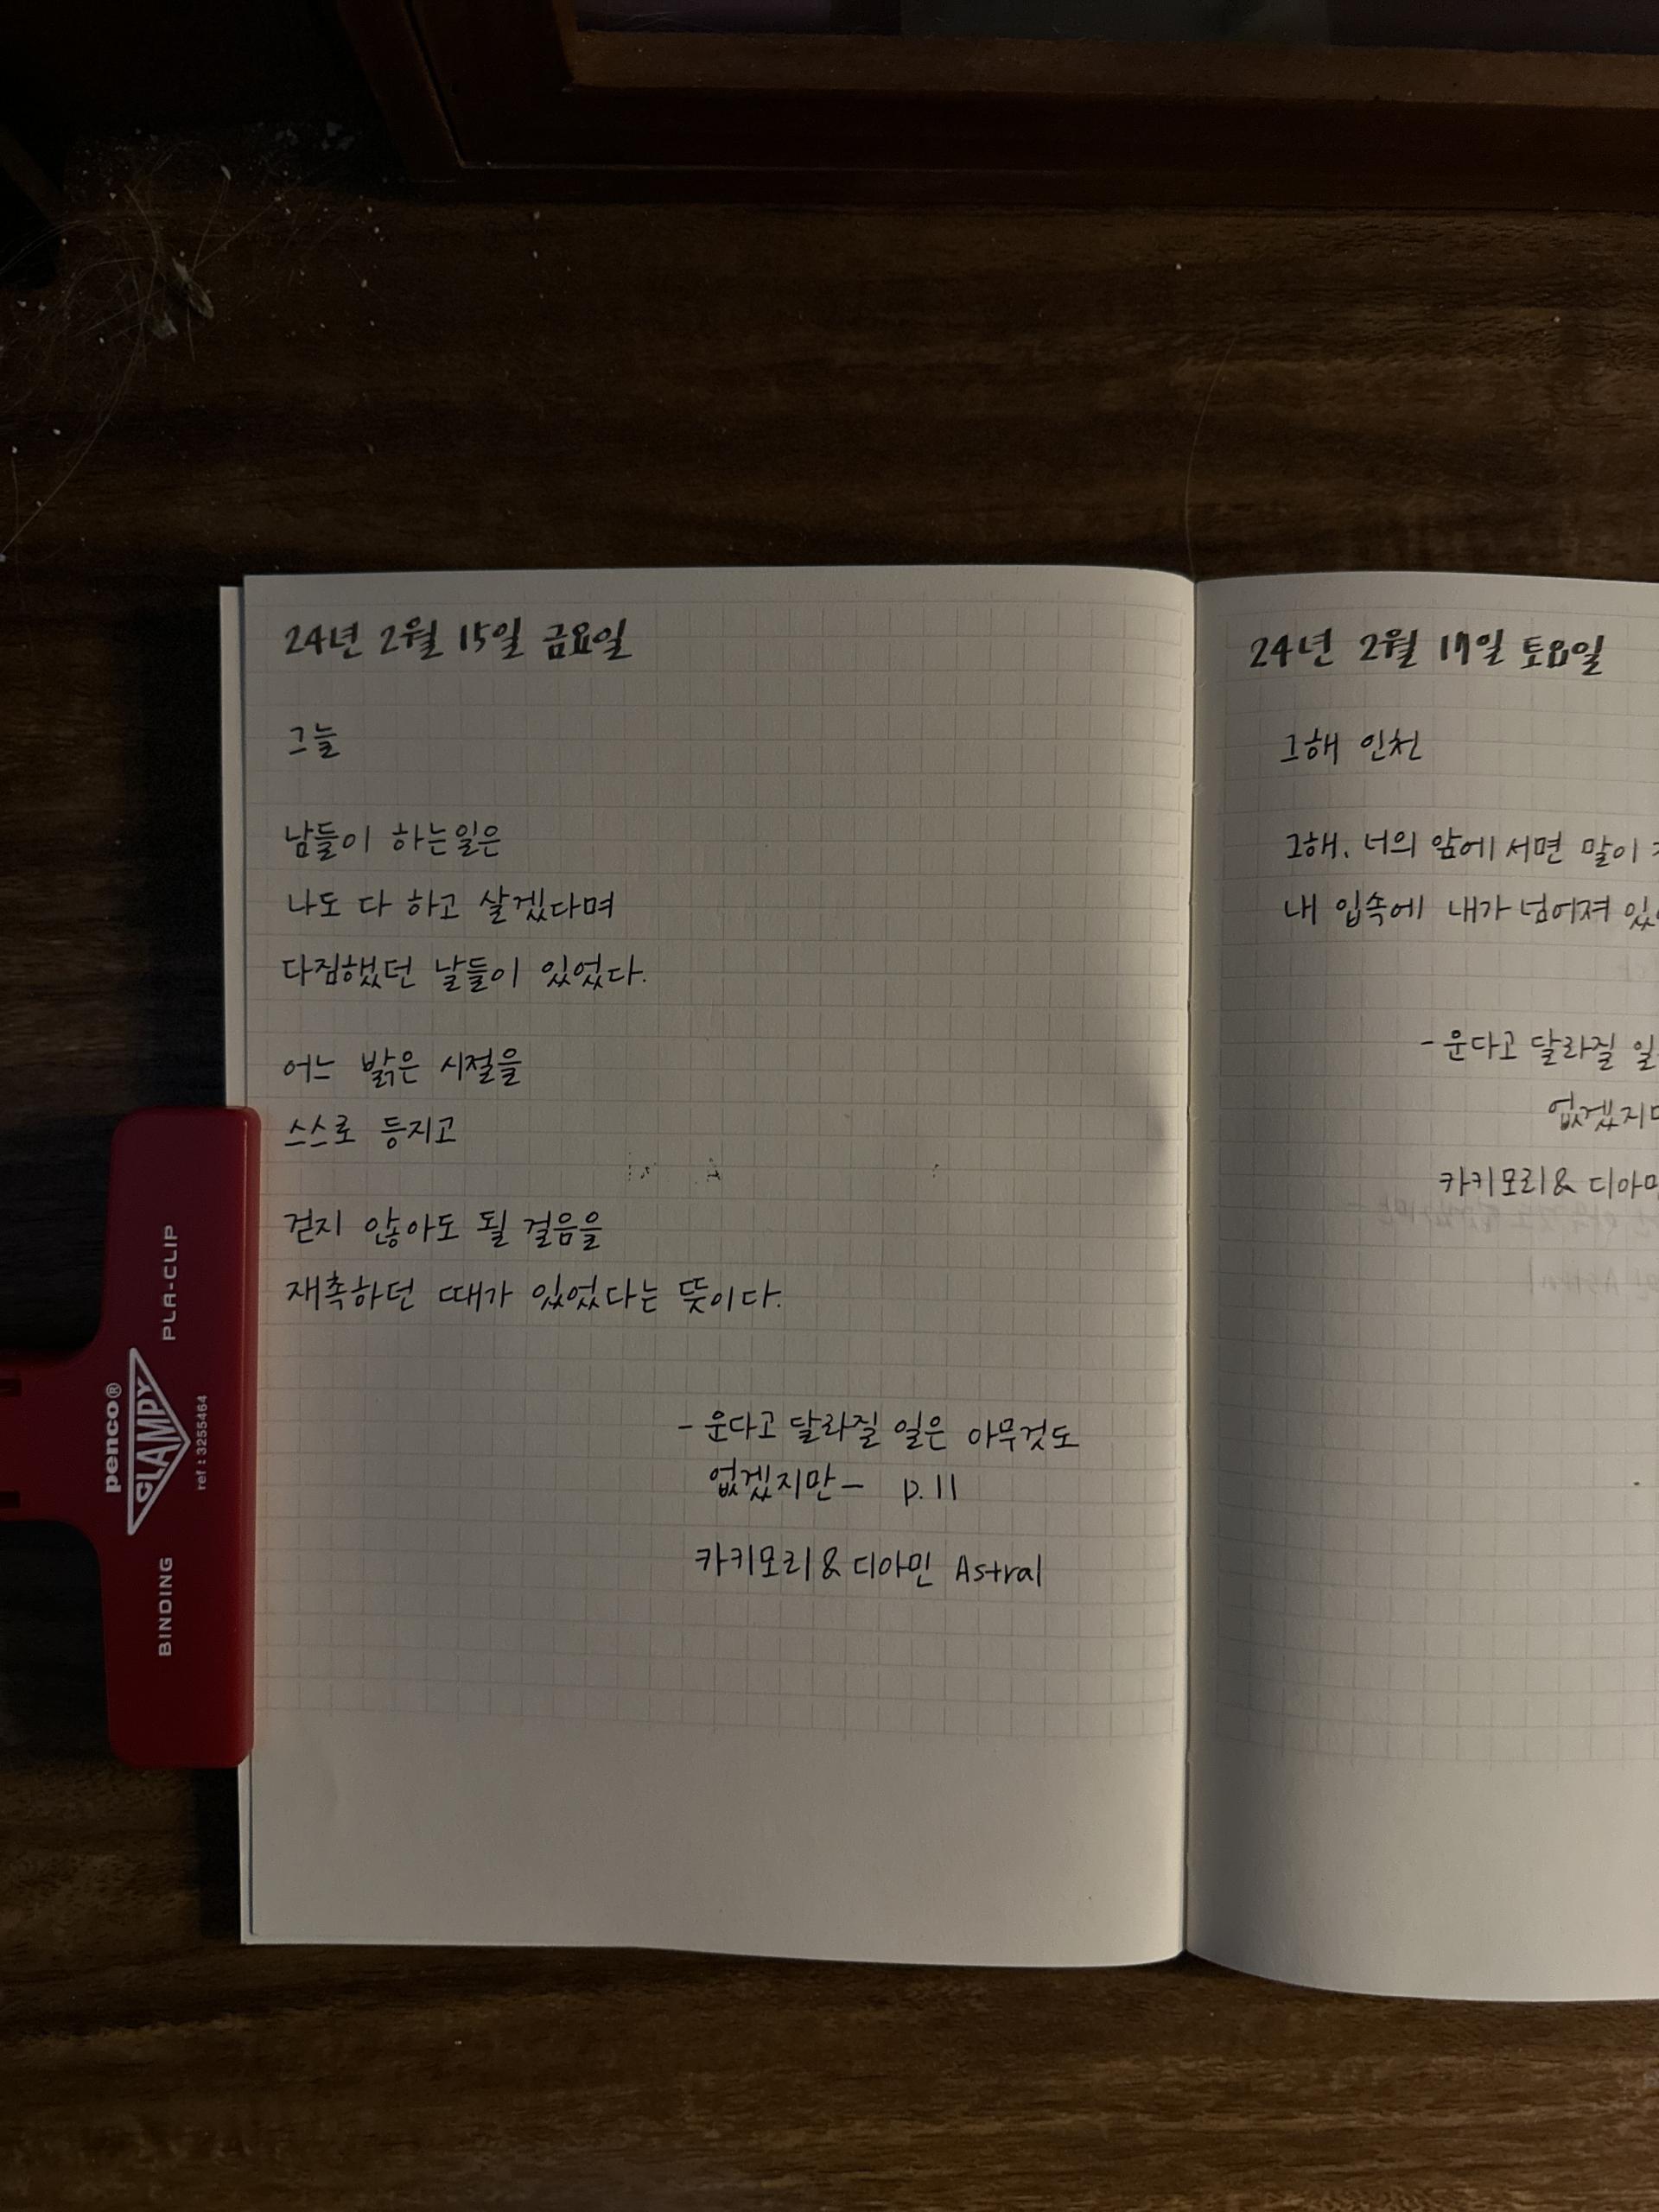 24년 2월 15일 금요일
그늘
남들이 하는일은
나도 다 하고 살겠다며
다짐했던 날들이 있었다.
어느 밝은 시절을
스스로 등지고
걷지 않아도 될 걸음을
재촉하던 때가 있었다는 뜻이다.
- 운다고 달라질 일은 아무것도
없겠지만 - p.11
카키모리 & 디아민 Astral
24년 2월 17일 토요일
그해 인천
그해. 너의 앞에 서면 말이
내 입속에 내가 넘어져
- 운다고 달라질
없겠지
카키모리 &
penco®
CLAMPY
PLA-CLIP
BINDING
ref : 3255464